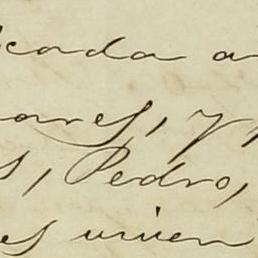 cada a
ares, y
s, Pedro,
es viven